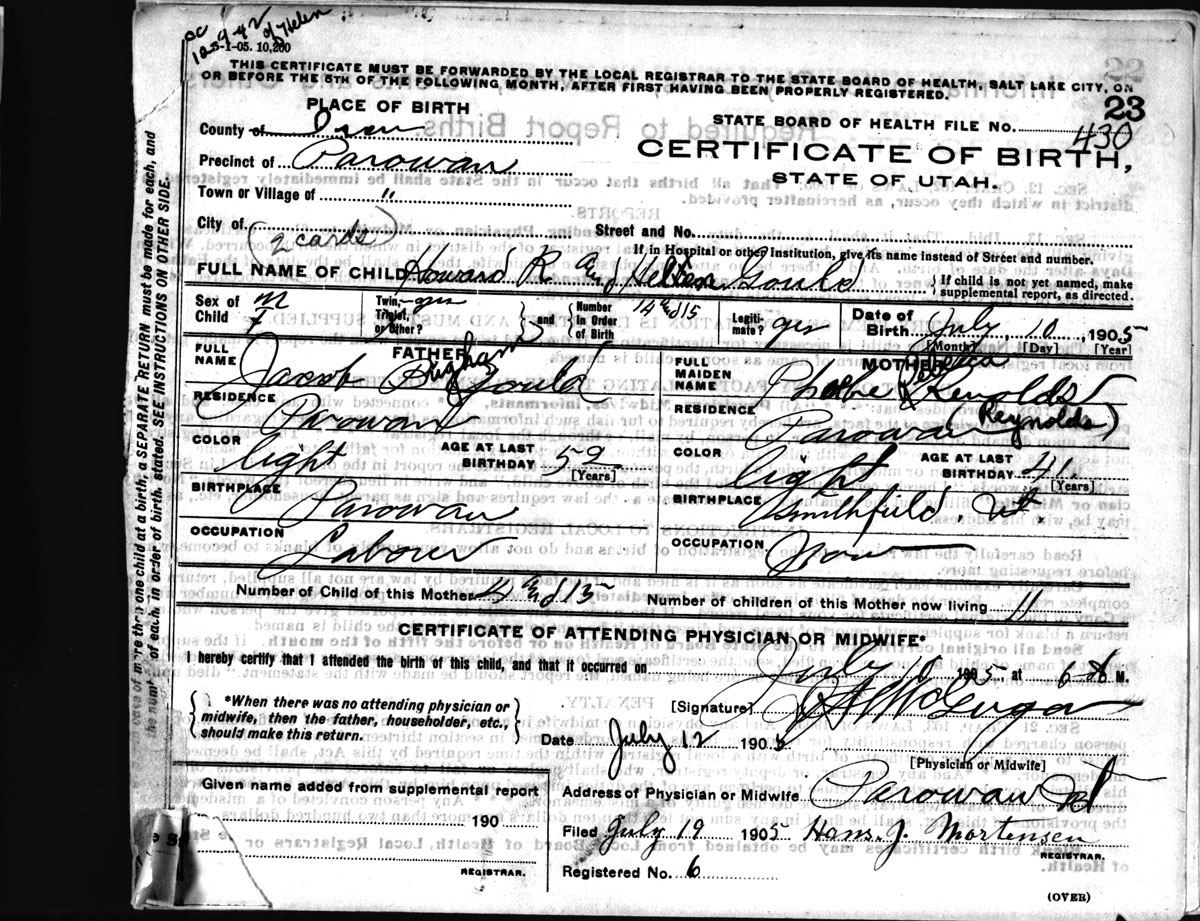 of Helen
125942
S-1-05. 10,200
THIS CERTIFICATE MUST BE FORWARDED BY THE LOCAL REGISTRAR TO THE STATE BOARD OF HEALTH, SALT LAKE CITY, ON
OR BEFORE THE 5TH OF THE FOLLOWING MONTH, AFTER FIRST HAVING BEEN PROPERLY REGISTERED.
23
PLACE OF BIRTH
STATE BOARD OF HEALTH FILE NO. 430
County of Iron
CERTIFICATE OF BIRTH,
Precinct of Parowan
STATE OF UTAH.
Town or Village of "
City of
Street and No.
(2 cards)
If in Hospital or other Institution, give its name instead of Street and number.
FULL NAME OF CHILD Howard R and Helen Gould
{ If child is not yet named, make supplemental report, as directed.
Sex of Child M F
Twin, Triplet, or Other? yes
and
Number in Order of Birth 14 and 15
Legitimate? yes
Date of Birth July 10, 1905
[Month] [Day] [Year]
FATHER
FULL NAME Jacob Brigham Gould
MOTHER
FULL MAIDEN NAME Phoebe Rebecca Reynolds
(Reynolds)
RESIDENCE Parowan
RESIDENCE Parowan
COLOR light
AGE AT LAST BIRTHDAY 59
[Years]
COLOR light
AGE AT LAST BIRTHDAY 41
[Years]
BIRTHPLACE Parowan
BIRTHPLACE Smithfield, Ut.
OCCUPATION Labour
OCCUPATION
Number of Child of this Mother 14 and 15
Number of children of this Mother now living 11
CERTIFICATE OF ATTENDING PHYSICIAN OR MIDWIFE*
I hereby certify that I attended the birth of this child, and that it occurred on July 10 1905, at 6 M.
*When there was no attending physician or midwife, then the father, householder, etc., should make this return.
[Signature]
Date July 12 1905
[Physician or Midwife]
Given name added from supplemental report
Address of Physician or Midwife Parowan Ut
190
Filed July 19 1905 Hans. J. Mortensen
REGISTRAR.
REGISTRAR.
Registered No. 6
(OVER)
case of more than one child at a birth, a SEPARATE RETURN must be made for each, and
the number of each, in order of birth, stated. SEE INSTRUCTIONS ON OTHER SIDE.